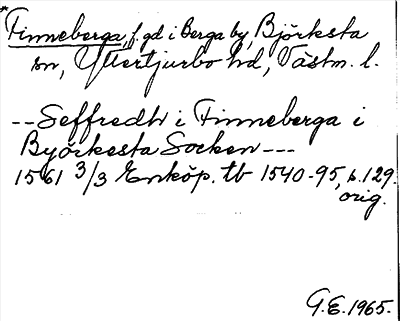 *Finneberga, f. gd i Berga by, Björksta
sn, Yttertjurbo hd, Västm. l.
--Seffredh i Finneberga i
Byörkesta Socken---
1561 3/3 Enköp. tb 1540-95, s. 129.
orig.
G.E. 1965.